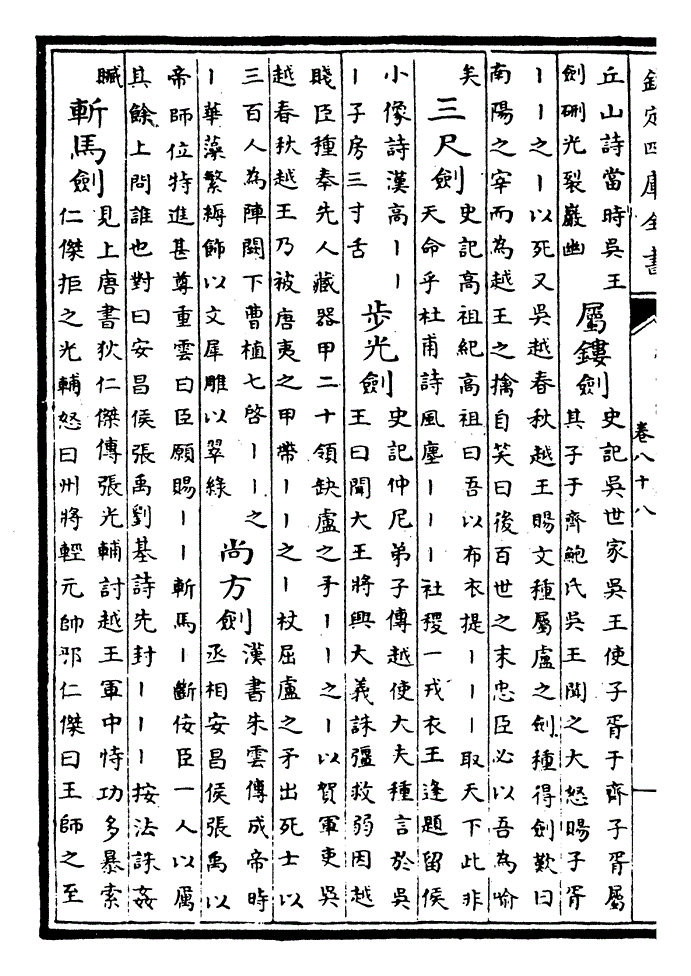 欽定四庫全書
卷八十八
丘山詩當時吳王
劍刜光裂巖幽
屬鏤劍
史記吳世家吳王使子胥于齊子胥屬
其子于齊鮑氏吳王聞之大怒賜子胥
丨丨之丨以死又吳越春秋越王賜文種屬盧之劍種得劍歎曰
南陽之宰而為越王之擒自笑曰後百世之末忠臣必以吾為喻
矣
三尺劍
史記高祖紀高祖曰吾以布衣提丨丨丨取天下此非
天命乎杜甫詩風塵丨丨丨社稷一戎衣王逢題留侯
小像詩漢高丨丨
丨子房三寸舌
步光劍
史記仲尼弟子傳越使大夫種言於吳
王曰聞大王將興大義誅彊救弱困越
賤臣種奉先人藏器甲二十領缺盧之矛丨丨之丨以賀軍吏吳
越春秋越王乃被唐夷之甲帶丨丨之丨杖屈盧之矛出死士以
三百人為陣闗下曹植七啓丨丨之
丨華藻繁縟飾以文犀雕以翠綠
尚方劍
漢書朱雲傳成帝時
丞相安昌侯張禹以
帝師位特進甚尊重雲曰臣願賜丨丨斬馬丨斷佞臣一人以厲
其餘上問誰也對曰安昌侯張禹劉基詩先封丨丨丨按法誅姦
贓
斬馬劍
見上唐書狄仁傑傳張光輔討越王軍中恃功多暴索
仁傑拒之光輔怒曰州將輕元帥耶仁傑曰王師之至